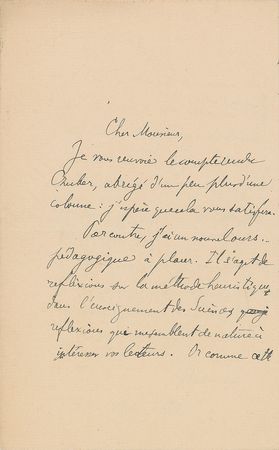 Cher Monsieur,
Je vous renvoie le compte rendu
abrégé d'un peu plus d'une
colonne : j'espère que cela vous satisfera.
Par contre, j'ai un nouvel ours..
pédagogique à placer. Il s'agit de
réflexions sur la méthode heuristique
dans l'enseignement des Sciences
réflexions qui me semblent de nature à
intéresser vos lecteurs. Or comme cette